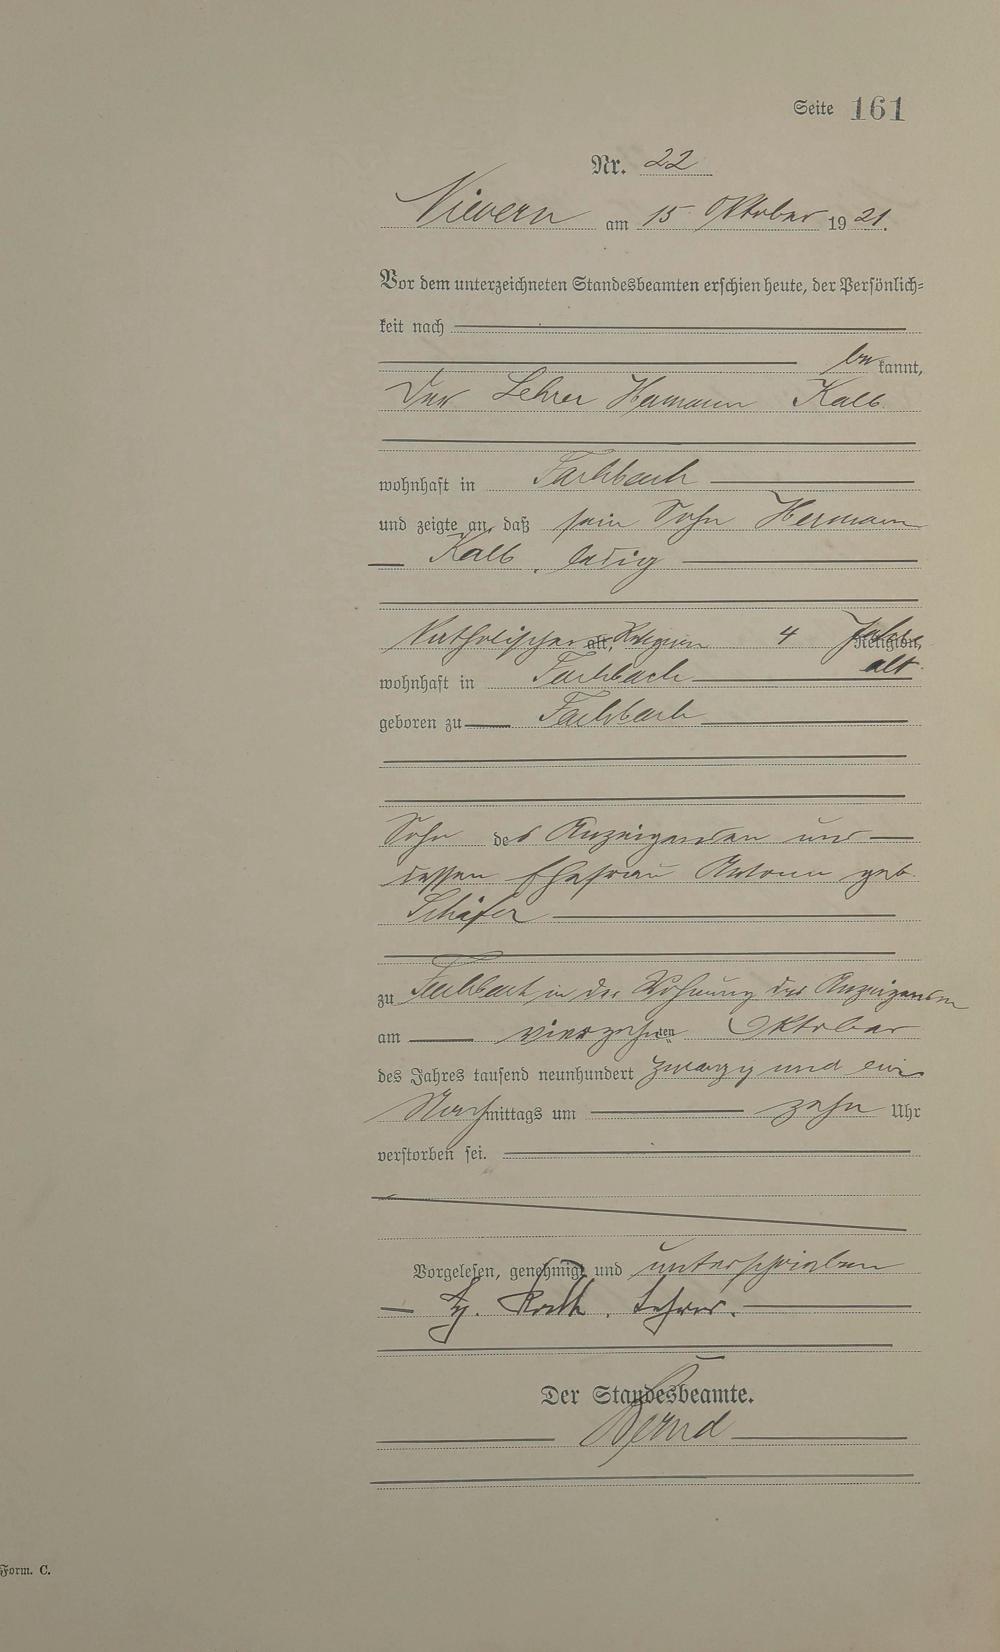 Seite 161
Nr. 22
Nievern am 15 Oktober 1921.
Vor dem unterzeichneten Standesbeamten erschien heute, der Persönlich=
keit nach
be kannt,
Der Lehrer Hermann Kalb
wohnhaft in Fachbach
und zeigte an, daß sein Sohn Hermann
Kalb, ledig
katholischer alt, Religion 4 Jahre Religion,
alt
wohnhaft in Fachbach
geboren zu Fachbach
Sohn des Anzeigenden und
dessen Ehefrau geb.
Schäfer
zu Fachbach in der Wohnung des Anzeigenden
am vierzehnten Oktober
des Jahres tausend neunhundert zwanzig und ein
Nachmittags um zehn Uhr
verstorben sei.
Vorgelesen, genehmigt und unterschrieben
Lehrer.
Der Standesbeamte.
Form. C.